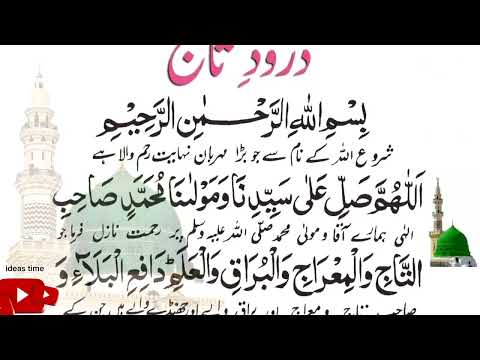 درودِ تاج
بِسْمِ اللهِ الرَّحْمٰنِ الرَّحِيْمِ
شروع اللہ کے نام سے جو بڑا مہربان نہایت رحم والا ہے
اَللّٰهُمَّ صَلِّ عَلٰى سَيِّدِنَا وَمَوْلٰىنَا مُحَمَّدٍ صَاحِبِ
الٰہی ہمارے آقا و مولیٰ محمد صلی اللہ علیہ وسلم پر رحمت نازل فرما جو
التَّاجِ وَالْمِعْرَاجِ وَالْبُرَاقِ وَالْعَلَمِ ؕ دَافِعِ الْبَلَآءِ وَ
صاحب تاج و معراج اور براق والے اور جھنڈے والے ہیں جن کے
ideas time